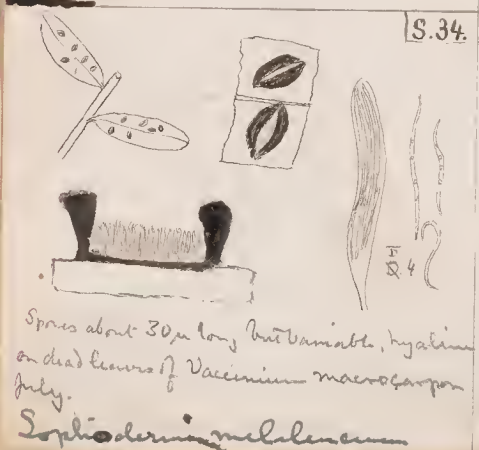 S.34.
F
D.4
Spores about 30µ long but variable, hyaline
on dead leaves of Vaccinium macrocarpon
July.
Lophodermium melaleucum